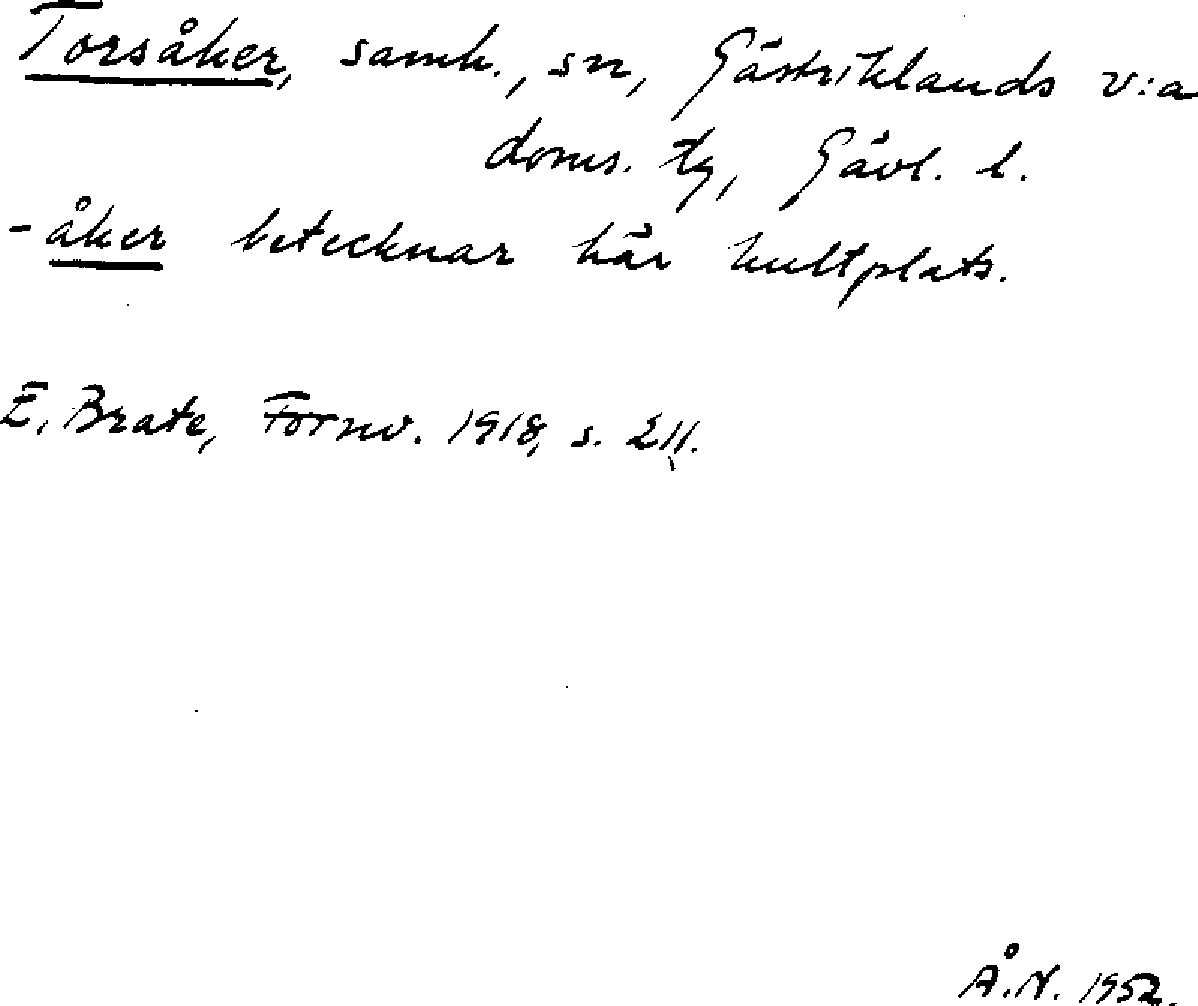 Torsåker, samh., sn, Gästriklands v:a
doms. tg, Gävl. l.
-åker betecknar här kultplats.
E. Brate, Fornv. 1918, s. 211.
Å.N. 1952.